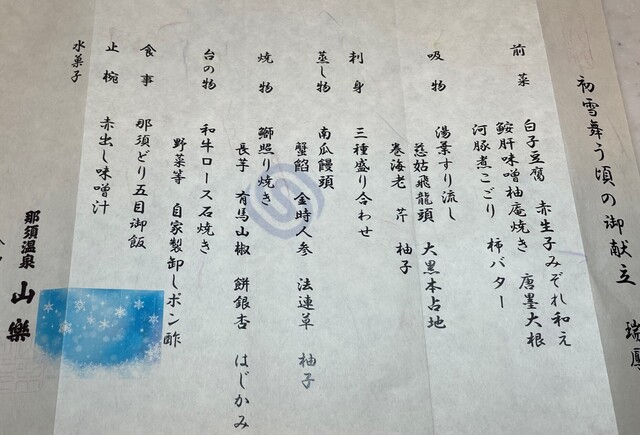 初雪舞う頃の御献立 瑞鳳
前菜 白子豆腐 赤生子みぞれ和え
鮟肝味噌柚庵焼き 唐墨大根
河豚煮こごり 柿バター
吸物 湯葉すり流し
慈姑飛龍頭 大黒本占地
巻海老 芹 柚子
刺身 三種盛り合わせ
蒸し物 南瓜饅頭
蟹餡 金時人参 法連草 柚子
焼物 鰤照り焼き
長芋 有馬山椒 餅銀杏 はじかみ
台の物 和牛ロース石焼き
野菜等 自家製卸しポン酢
食事 那須どり五目御飯
止椀 赤出し味噌汁
水菓子
那須温泉 山樂